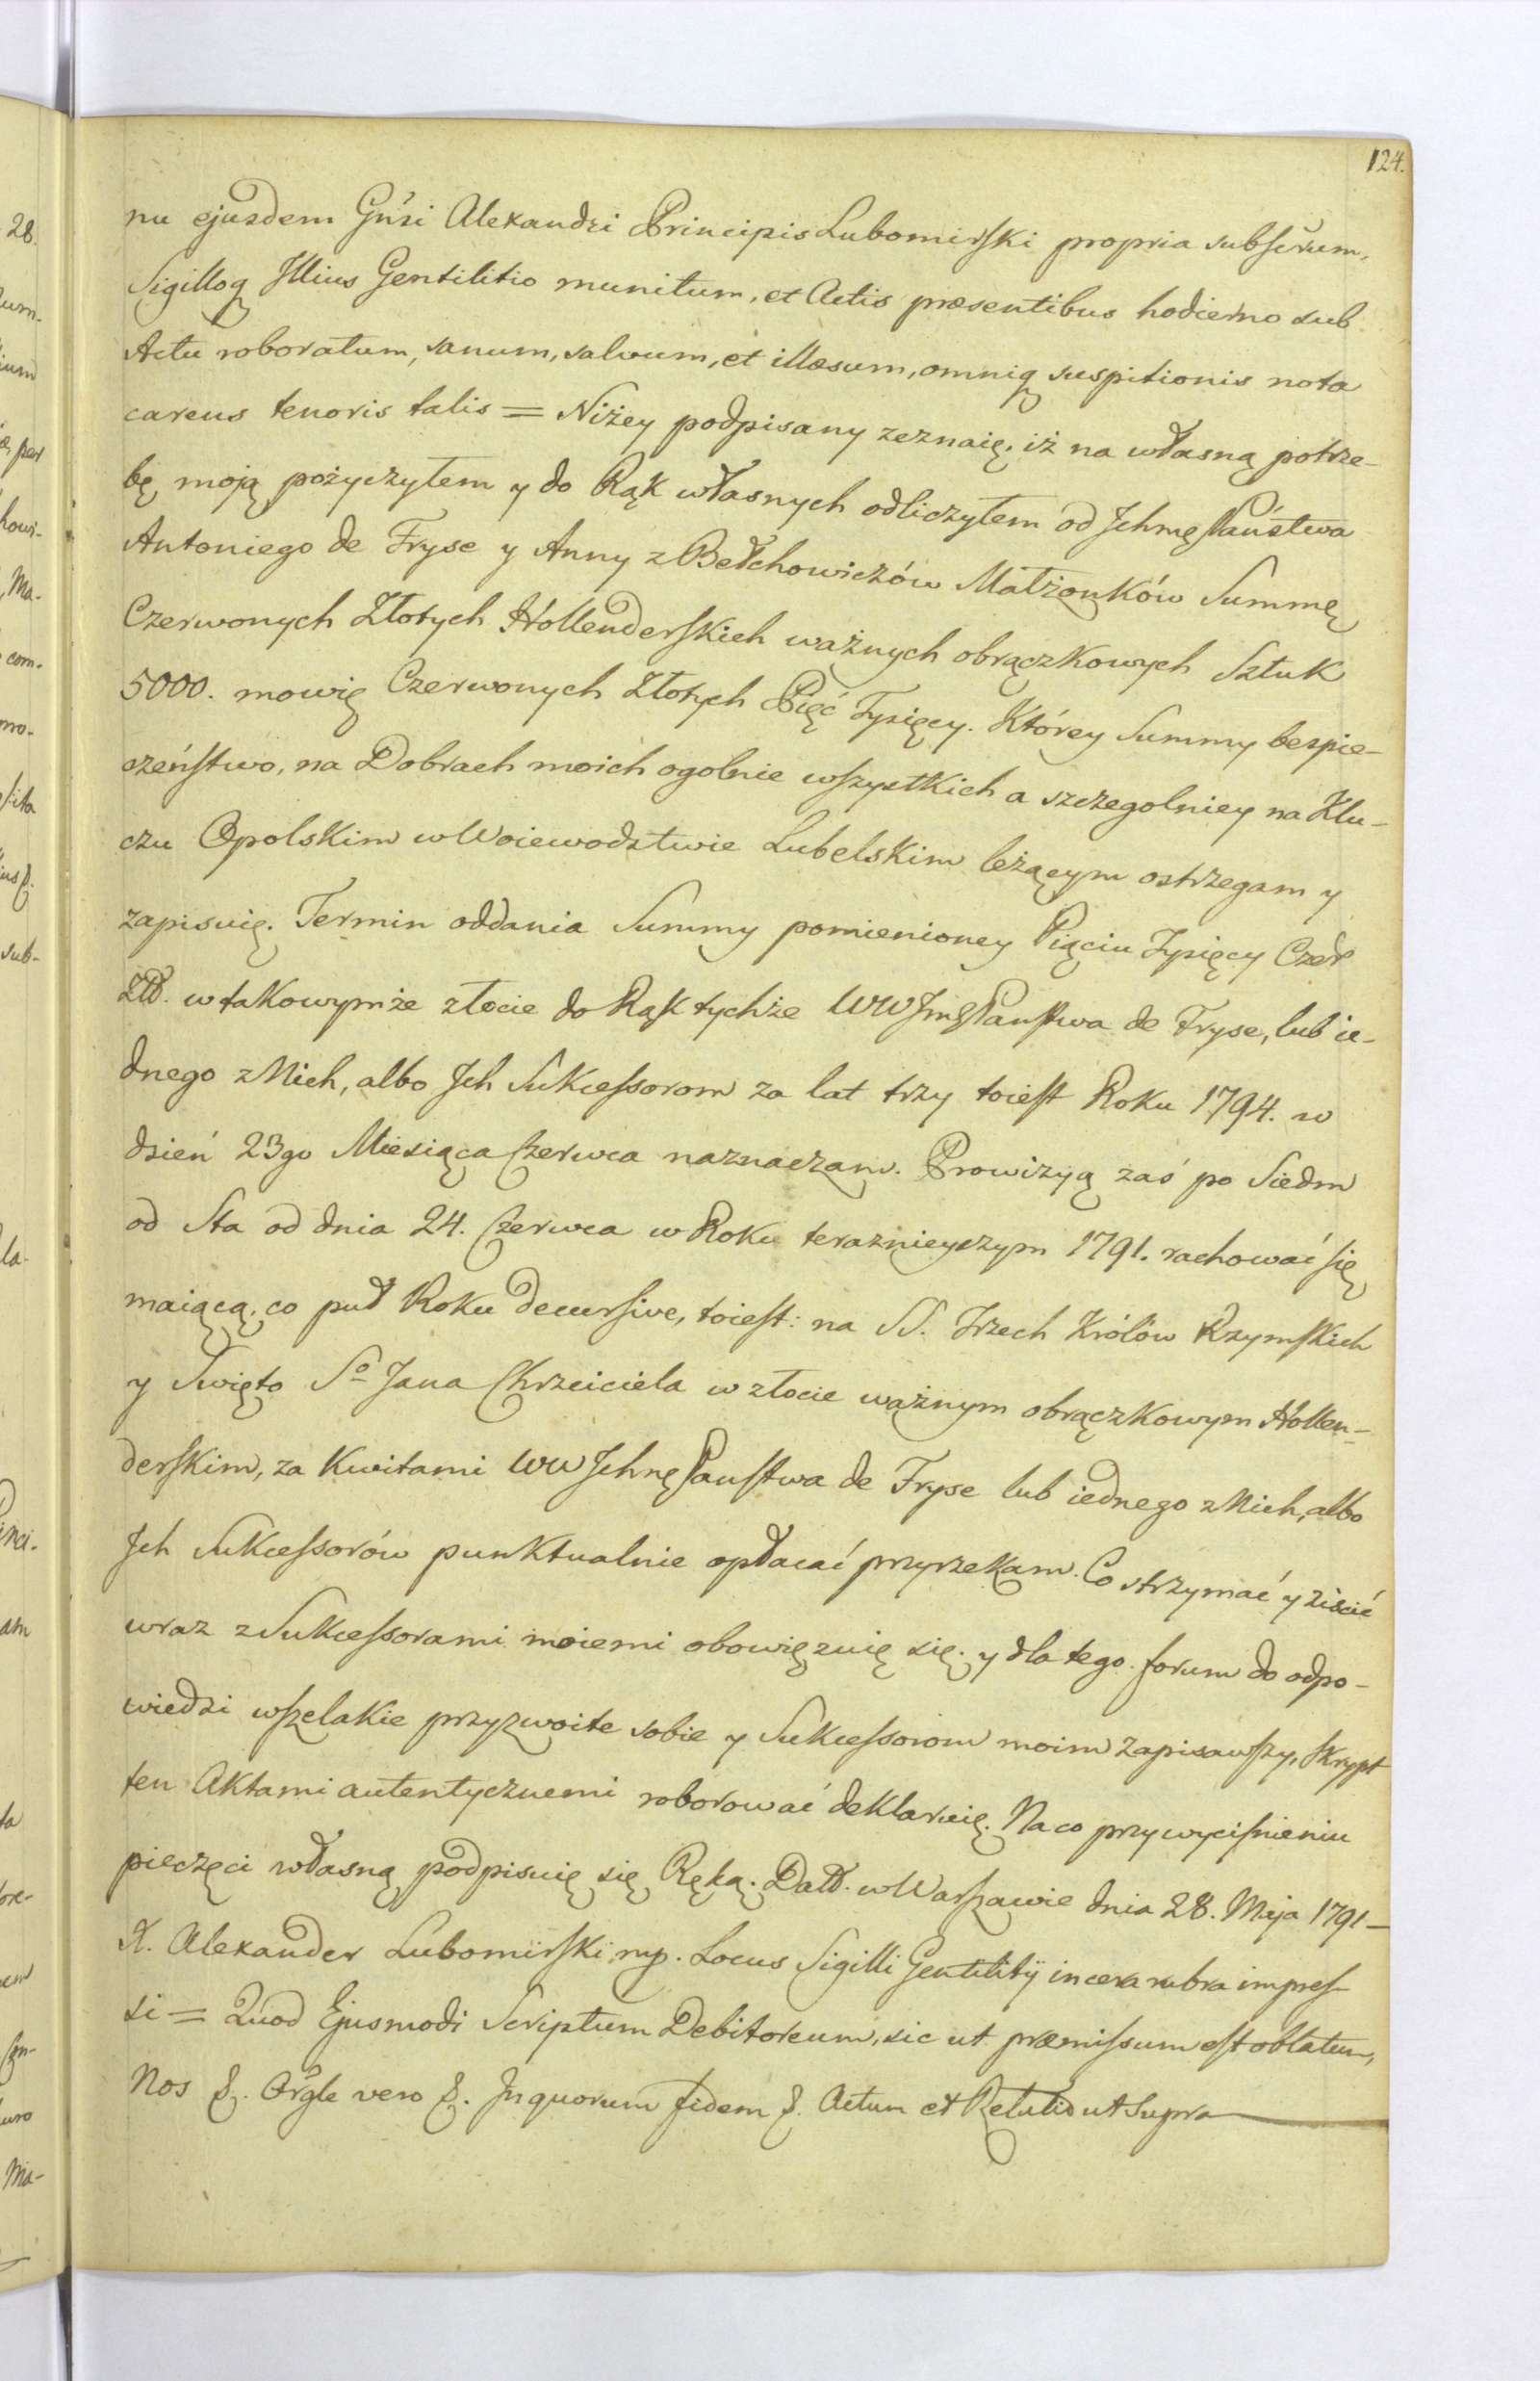 124.
nu ejusdem Gńsi Alexandri Principis Lubomirski propria subscrum,
Sigilloq Illius Gentilitio munitum, et Actis præsentibus hodierno sub
Actu roboratum, sanum, salvum, et illæsum, omniq suspitionis nota
carens tenoris talis = Niżey podpisany zeznaię, iż na własną potrze-
bę moją pożyczyłem y do Rąk własnych odliczyłem od Jchmę Państwa
Antoniego de Fryse y Anny z Bełchowiczów Małżonków Summę
Czerwonych Złotych Hollenderskich ważnych obrączkowych Sztuk
5000. mowię Czerwonych Złotych Pięć Tysięcy. Którey Summy bespie-
czeństwo, na Dobrach moich ogolnie wszystkich a szczegolniey na Klu-
czu Opolskim w Woiewodztwie Lubelskim leżącym ostrzegam y
zapisuię. Termin oddania Summy pomienioney Pięciu Tysięcy Czer
Złł. w takowymże złocie do Rąk tychże WW Jmę Państwa de Fryse, lub ie-
dnego z Nich, albo Jch Sukcessorom za lat trzy toiest Roku 1794. w
dzień 23go Miesiąca Czerwca naznaczam. Prowizyą zaś po Siedm
od Sta od dnia 24. Czerwca w Roku teraznieyszym 1791. rachować się
maiącą, co puł Roku decursive, toiest: na SS. Trzech Królów Rzymskich
y Swięto So Jana Chrzciciela w złocie ważnym obrączkowym Hollen-
derskim, za Kwitami WW Jchmę Państwa de Fryse lub iednego z Nich, albo
Jch Sukcessorów punktualnie opłacać przyrzekam. Co strzymać y ziścić
wraz z Sukcessorami moiemi obowięzuię się, y dla tego forum do odpo-
wiedzi wszelakie przyzwoite sobie y Sukcessorom moim zapisawszy, skrypt
ten Aktami autentycznemi roborować deklaruię. Na co przy wyciśnieniu
pieczęci własną podpisuię się Ręką. Datt. w Warszawie dnia 28. Maja 1791 -
X. Alexander Lubomirski mp. Locus Sigilli Gentilitÿ in cera rubra impres-
si = Quod Ejusmodi Scriptum Debitoreum, sic ut præmissum est oblatum,
Nos &. Orgle vero &. In quorum fidem &. Actum et Relatio ut Supra